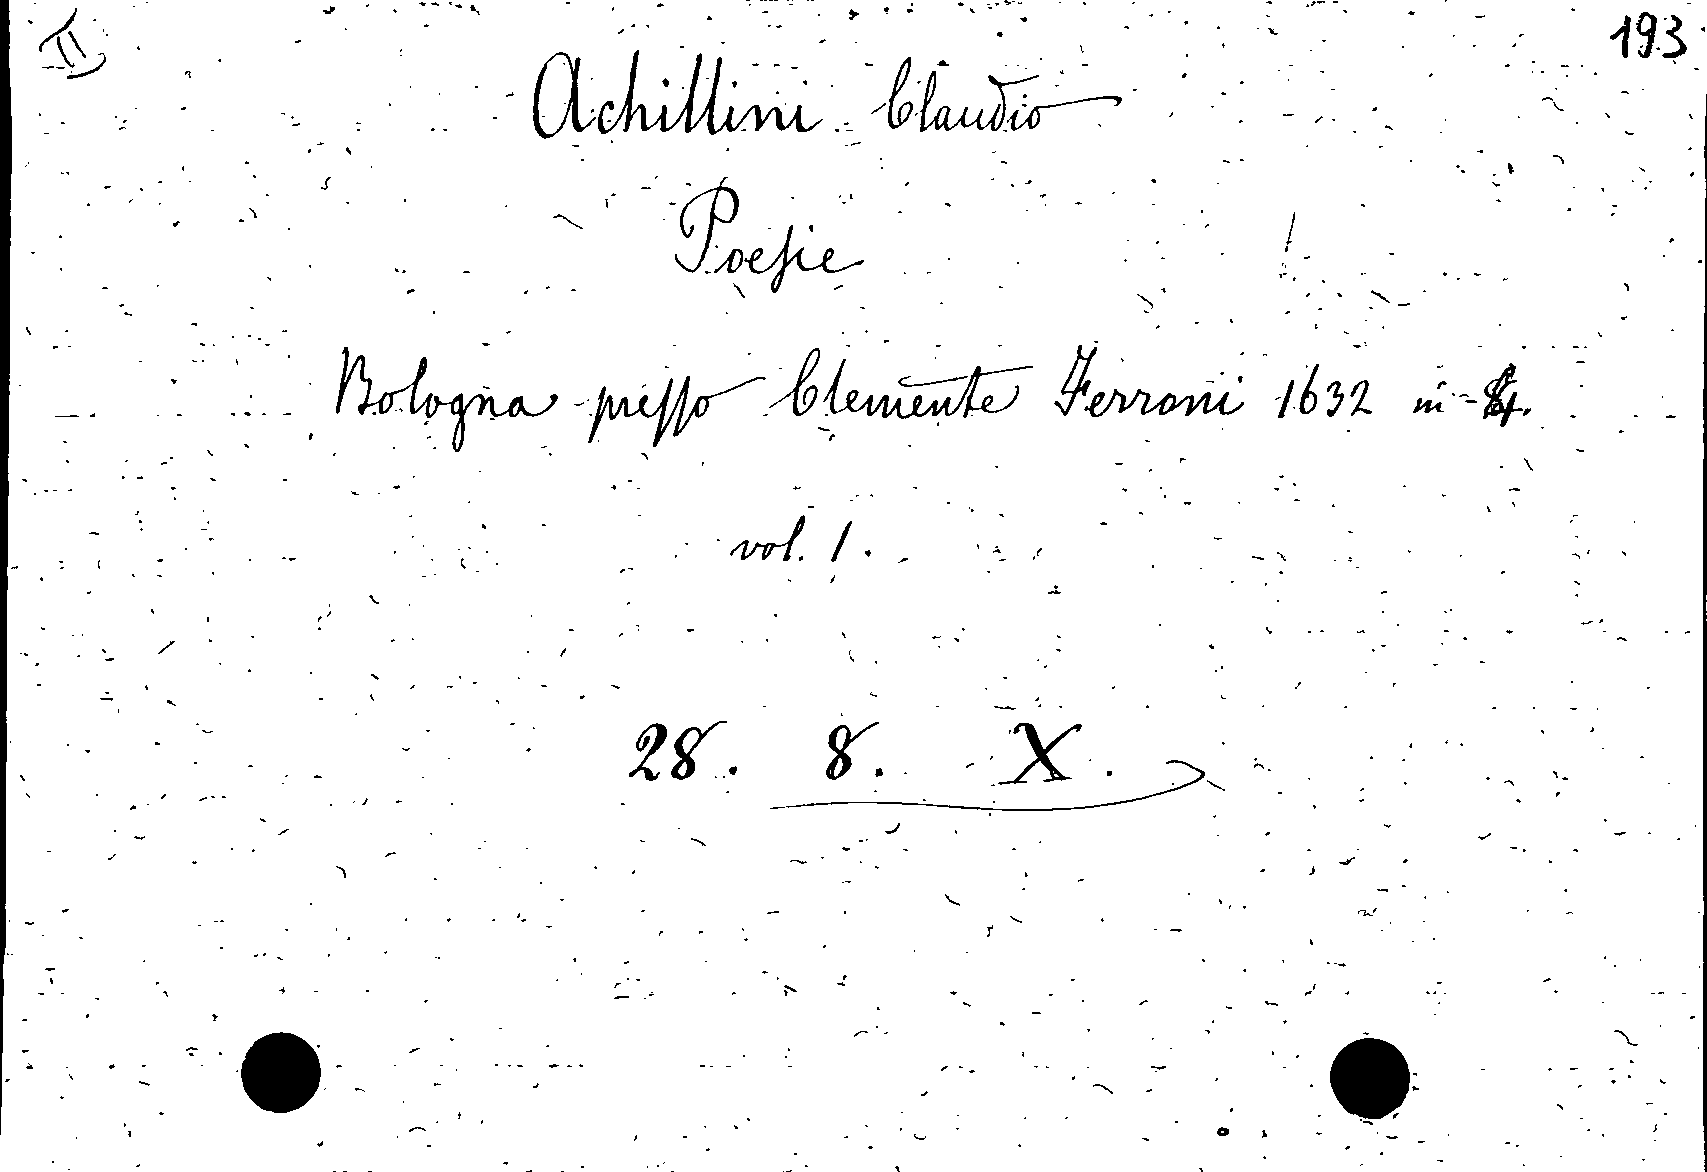 II
193
Achillini Claudio
Poesie
Bologna presso Clemente Ferroni 1632 in-4.
vol. 1.
28. 8. X.